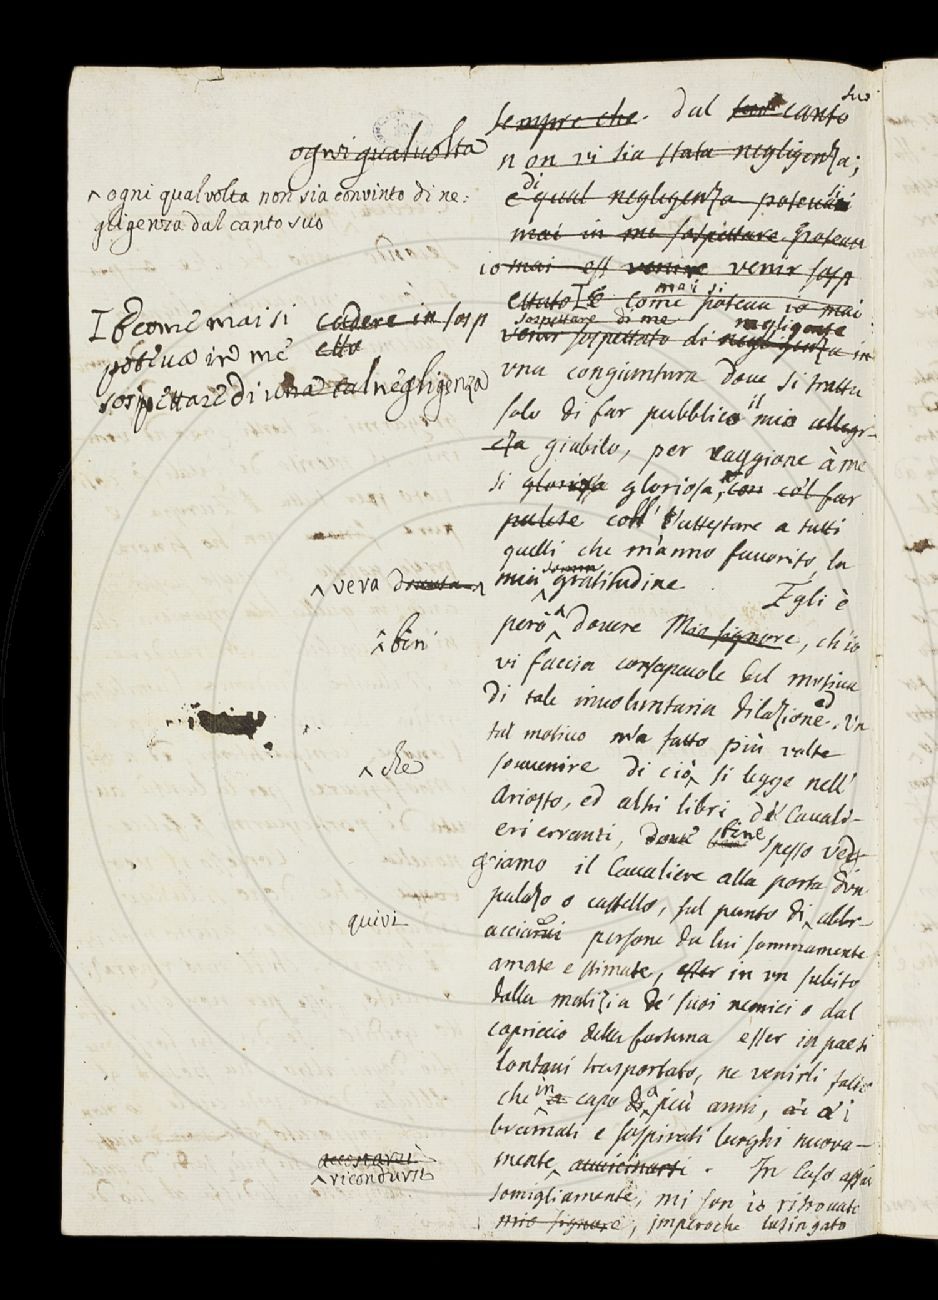 ogni qual volta
^ ogni qual volta non sia convinto di ne:
gligenza dal canto suo
I E come mai si cadere in sosp
poteva in me etto
sospettare di una tal negligenza
^ vera donuta
^ ben
^ che
quivi
accostarsi
^ ricondursi
sempre che. dal suo canto suo
non vi sia stata negligenza;
di
e qual negligenza potevasi
mai in me sospettare. Poteva
io mai ess venire venir sosp
ettato I E come mai si poteva io mai
sospettare di me negligente
venir sospettato di negligenza in
una congiuntura dove si tratta
solo di far pubblico il mio allegr-
eza giubilo, per raggione à me
si gloriosa gloriosa, con col far
palese coll' l'attestare a tutti
quelli che m'anno favorito, la
mia gratitudine. Egli è
però ^ dovere Mio signore, ch'io
vi faccia consapevole del motivo
di tale involontaria dilazione. Un
tal motivo m'a fatto più volte
sovvenire di ciò ^ si legge nell'
Ariosto, ed altri libri de' Cavali-
eri erranti, dove bene spesso ved
giamo il Cavaliere alla porta d'un
palazo o castello, sul punto di ^ abbr-
acciarvi persone da lui sommamente
amate e stimate, esser in un subito
dalla malizia de' suoi nemici o dal
capriccio della fortuna esser in paesi
lontani trasportato, ne venirli fatto
che in a capo di a più anni, ai a'i
bramati e sospirati luoghi nuova-
mente ^ avvicinarsi. In caso assai
somigliamente, mi son io ritrovato
mio signore, imperoche lusingato